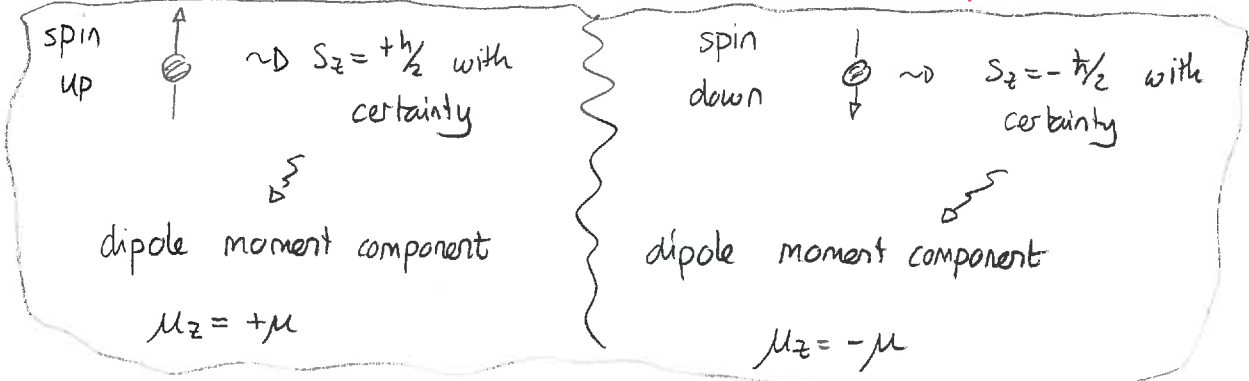 spin
up
~> Sz = +ħ/2 with
certainty
dipole moment component
μz = +μ
spin
down
~> Sz = - ħ/2 with
certainty
dipole moment component
μz = -μ